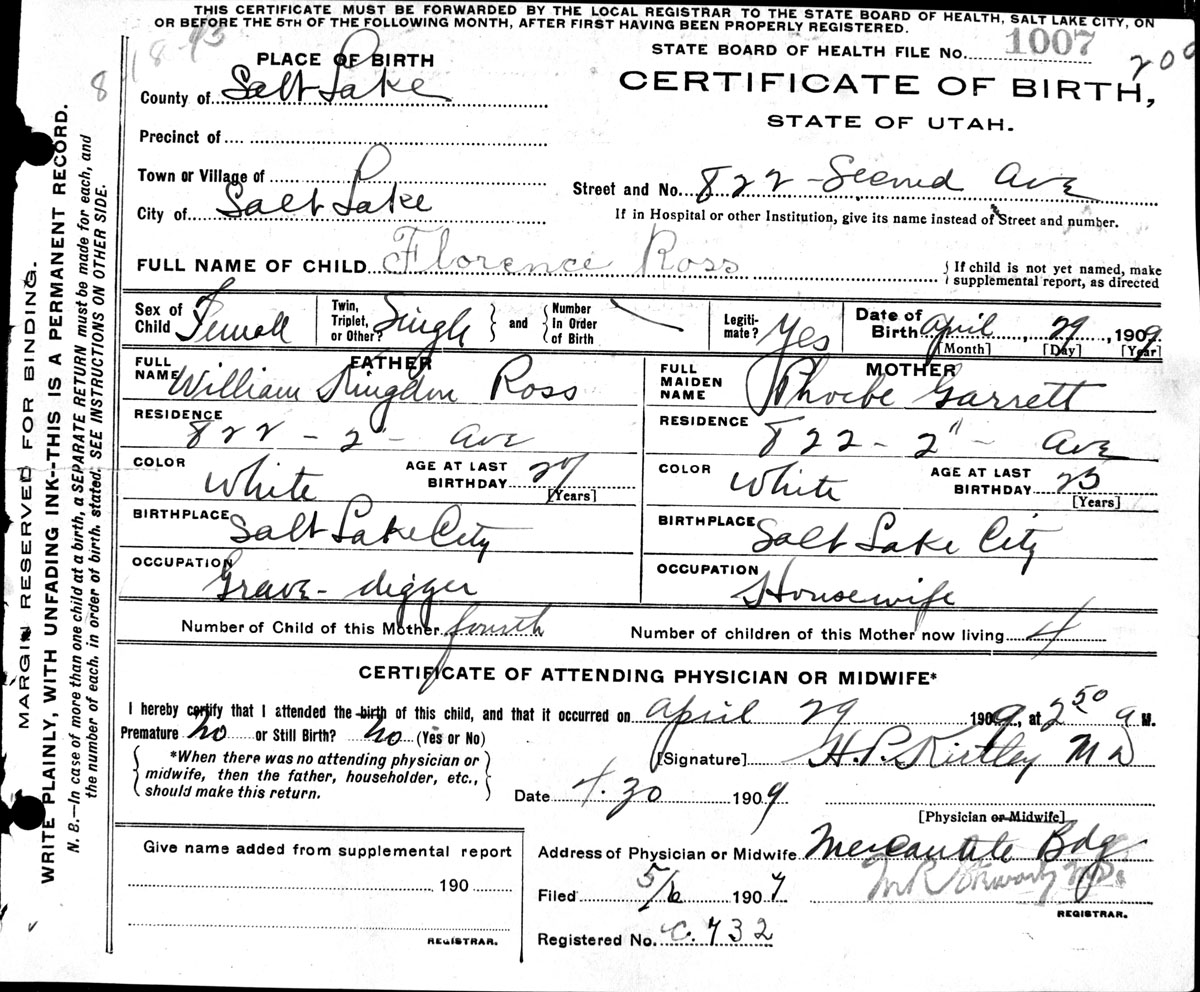 THIS CERTIFICATE MUST BE FORWARDED BY THE LOCAL REGISTRAR TO THE STATE BOARD OF HEALTH, SALT LAKE CITY, ON
OR BEFORE THE 5TH OF THE FOLLOWING MONTH, AFTER FIRST HAVING BEEN PROPERLY REGISTERED.
STATE BOARD OF HEALTH FILE No. 1007
209
PLACE OF BIRTH
CERTIFICATE OF BIRTH,
STATE OF UTAH.
County of Salt Lake
Precinct of
Town or Village of
City of Salt Lake
Street and No. 822 - Second Ave
If in Hospital or other Institution, give its name instead of Street and number.
FULL NAME OF CHILD Florence Ross
If child is not yet named, make
supplemental report, as directed
Sex of Child Femall
Twin, Triplet, or Other? Single and Number In Order of Birth
Legiti-mate? Yes
Date of Birth April, 29, 1909
[Month] [Day] [Year]
FATHER
FULL NAME William Kingdon Ross
RESIDENCE 822 - 2" - Ave
COLOR White
AGE AT LAST BIRTHDAY 27 [Years]
BIRTHPLACE Salt Lake City
OCCUPATION Grave-digger
MOTHER
FULL MAIDEN NAME Phoebe Garrett
RESIDENCE 822 - 2" - Ave
COLOR White
AGE AT LAST BIRTHDAY 25 [Years]
BIRTHPLACE Salt Lake City
OCCUPATION Housewife
Number of Child of this Mother fourth
Number of children of this Mother now living 4
CERTIFICATE OF ATTENDING PHYSICIAN OR MIDWIFE*
I hereby certify that I attended the birth of this child, and that it occurred on April 29 1909, at 2 50 a M.
Premature No or Still Birth? No (Yes or No)
*When there was no attending physician or
midwife, then the father, householder, etc.,
should make this return.
[Signature] H. P. Kirtley M D
Date 4.30 1909
[Physician or Midwife]
Give name added from supplemental report
190
REGISTRAR.
Address of Physician or Midwife Mercantile Bdg
Filed 5/6 1909
REGISTRAR.
Registered No. C.732
MARGIN RESERVED FOR BINDING.
WRITE PLAINLY, WITH UNFADING INK--THIS IS A PERMANENT RECORD.
N. B.—In case of more than one child at a birth, a SEPARATE RETURN must be made for each, and
the number of each, in order of birth, stated. SEE INSTRUCTIONS ON OTHER SIDE.